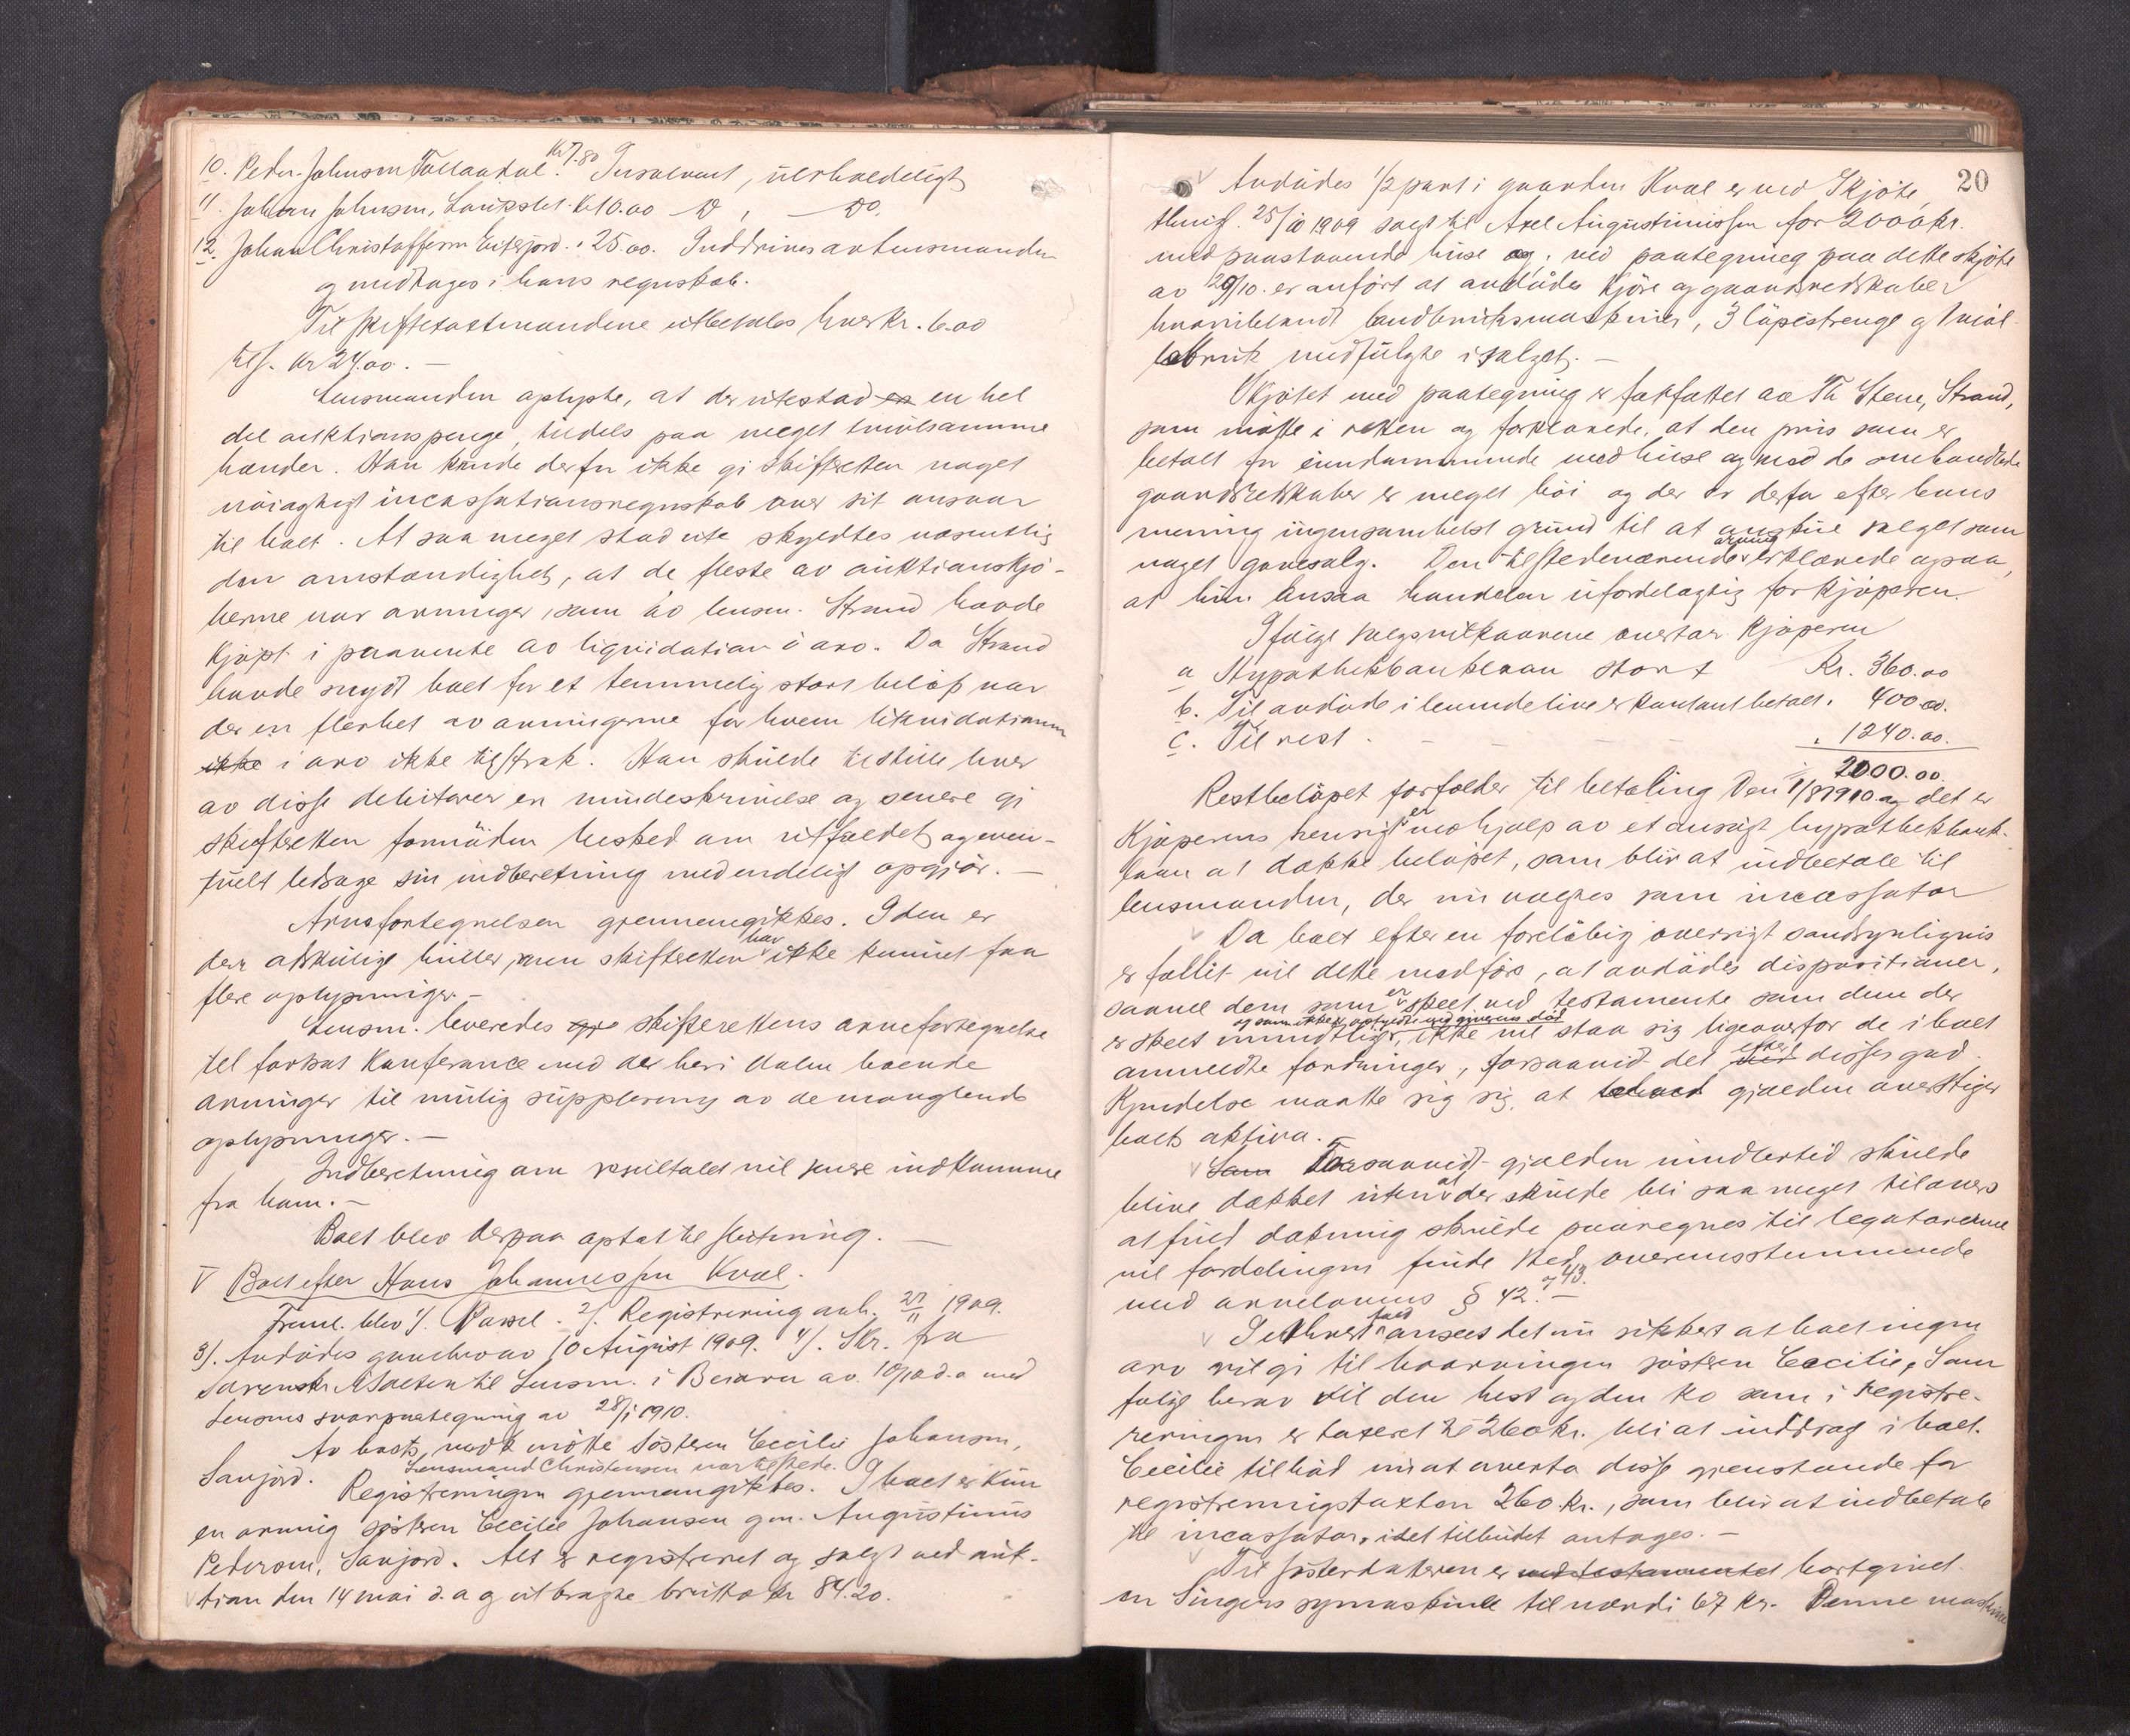 10. Peder Johnsen Tollaadal. Kr 7.80 Insolvent, uerholdeligt
11. Johan Johnsen, Kr 10.00 Do , Do.
12. Johan Christoffersen Eiterjord. " 25.00. Inddrives av lensmanden
og medtages i hans regnskab.
Til skiftetakstmændene utbetales hver kr. 6.00
tils. kr 24.00. —
Lensmanden oplyste, at der utestod en en hel
del auktionspenge, tildels paa meget tvivlsomme
hænder. Han kunde derfor ikke gi skifteretten noget
nøiagtigt incassationsregnskab over sit ansvar
til boet. At saa meget stod ute skyldtes væsentlig
den omstændighet, at de fleste av auktionskjø-
berne var arvinger, som av lensm. Strand havde
kjøpt i paavente av liquidation i arv. Da Strand
havde snydt boet for et temmelig stort beløp var
der en flerhet av arvingerne for hvem likvidationen
ikke i arv ikke tilstrak. Han skulde tilstille hver
av disse debitorer en mindeskrivelse og senere gi
skifteretten fornøden besked om utfaldet og even-
tuelt ledsage sin indberetning med endeligt opgjør. —
Arvefortegnelsen gjennemgikkes. I den er
der adskillige huller, men skifteretten har ikke kunnet faa
flere oplysninger. —
Lensm. leveredes skifterettens arvefortegnelse
til fortsat konferance med de her i dalen boende
arvinger til mulig supplering av de manglende
oplysninger. —
Indberetning om resultatet vil senere indkomme
fra ham. —
Boet blev derpaa optat til slutning. —
V Boet efter Hans Johannessen Kvæl.
Freml. blev 1/. Passel. 2/. Registrering avh. 27/11 1909.
3/. Avdødes gavebrev av 10 August 1909. 4/. Skr. fra
Sorenskr. i Salten til Lensm. i Beiarn av 18/12 d.a med
Lensms svarpaategning av 28/1 1910.
Av boets vedk. møtte søsteren Cecilie Johansen,
Sanjord. Lensmand Christensen var tilstede.
Registreringen gjennemgikkes. I boet er kun
en arving søsteren Cecilie Johansen gm. Augustinus
Pedersen, Sanjord. Alt er registreret og solgt ved auk-
tion den 14 mai d.a og utbragte brutto kr 84.20.
20
Avdødes 1/2 part i gaarden Kvæl er ved Skjøte
thingl. 25/10 1909 solgt til Axel Augustinussen for 2000 kr.
med paastaaende huse og. ved paategning paa dette skjøte
av 29/10. er anført at avdødes kjøre og gaardsredskaber
hvoriblandt landbruksmaskiner, 3 løpestrenge og 1 notl
labruk medfulgte i salget. —
Skjøtet med paategning er forfattet av Th Stene, Strand,
som møtte i retten og forklarede, at den pris som er
betalt for eiendommen med huse og med de omhandlede
gaardsredskaber er meget høi og der er derfor efter hans
mening ingensomhelst grund til at anse salget som
noget gavesalg. Den tilstedeværende arving erklærede ogsaa,
at hun ansaa handelen ufordelagtig for kjøperen.
Ifølge salgsvilkaarene overtar kjøperen
a Hypothekbanklaan stort Kr. 360.00
b. Til avdøde i levende live er kontant betalt " 400.00.
c. Til rest - - - - " 1240.00.
2000.00.
Restbeløpet forfalder til betaling den 1/8 1910. og det er
kjøperens hensigt er ved hjælp av et ansøgt hypothekbank-
laan at dække beløpet, som blir at indbetale til
lensmanden, der nu vælges som incassator
Da boet efter en foreløbig oversigt sandsynligvis
er fallit vil dette medføre, at avdødes dispositioner,
saavel dem som er skeet ved testamente som dem der
er skeet mundtligt, og som ikke er opfyldt ved giverens død ikke vil staa sig ligeoverfor de i boet
anmeldte fordringer, forsaavidt det efter disses god-
kjendelse maatte vise sig, at gjælden overstiger
boets aktiva. —
Som Forsaavidt gjælden imidlertid skulde
blive dækket uten at der skulde bli saa meget tilovers
at fuld dækning skulde paaregnes til legatarerne
vil fordelingen finde sted overensstemmende
med arvelovens § 42 og 43. —
I ethvert fald ansees det nu sikkert at boet ingen
arv vil gi til hovarvingen søsteren Cecilie. Som
følge herav vil den hest og den ko som i registre-
reringen er taxeret til 260 kr. bli at inddrag i boet.
Cecilie tilbød nu at overta disse gjenstande for
registreringstaxten 260 kr., som blir at indbetale
til incassator, idet tilbudet antages. —
Til søsterdatteren er ved testamentet bortgivet
en Singers symaskine til værdi 67 kr. Denne maskine